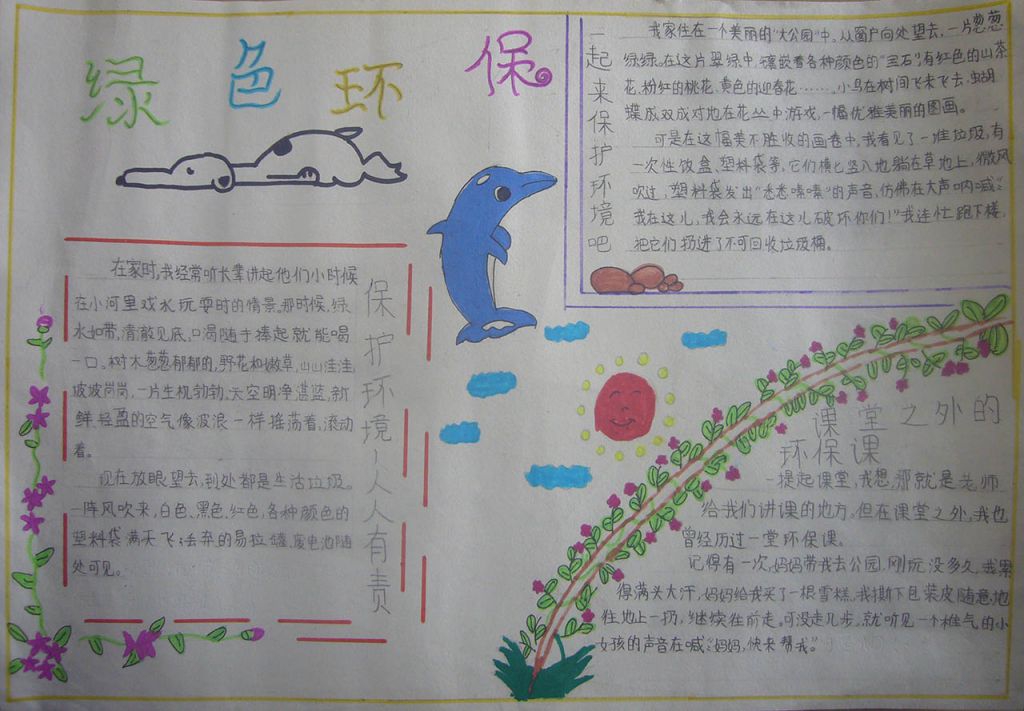 绿色环保
一起来保护环境吧
我家住在一个美丽的“大公园”中。从窗户向处望去,一片葱葱
绿绿。在这片翠绿中,镶嵌着各种颜色的“宝石”:有红色的山茶
花、粉红的桃花、黄色的迎春花……。小鸟在树间飞来飞去,蝴
蝶成双成对地在花丛中游戏,一幅优雅美丽的图画。
可是在这幅美不胜收的画卷中,我看见了一堆垃圾,有
一次性饭盒、塑料袋等,它们横七竖八地躺在草地上,微风
吹过,塑料袋发出“悉悉嗦嗦”的声音,仿佛在大声呐喊:“
我在这儿,我会永远在这儿破坏你们!”我连忙跑下楼,
把它们扔进了不可回收垃圾桶。
保护环境,人人有责
在家时,我经常听长辈讲起他们小时候
在小河里戏水玩耍时的情景。那时候,绿
水如带,清澈见底,口渴随手捧起就能喝
一口。树木葱葱郁郁的,野花和嫩草,山山洼洼,
坡坡岗岗,一片生机勃勃,天空明净湛蓝,新
鲜、轻盈的空气像波浪一样摇荡着,滚动
着。
现在放眼望去,到处都是生活垃圾。
一阵风吹来,白色、黑色、红色,各种颜色的
塑料袋满天飞;丢弃的易拉罐、废电池随
处可见。
课堂之外的
环保课
一提起课堂,我想,那就是老师
给我们讲课的地方。但在课堂之外,我也
曾经历过一堂环保课。
记得有一次,妈妈带我去公园,刚玩没多久,我累
得满头大汗,妈妈给我买了一根雪糕,我撕下包装皮随意地
往地上一扔,继续往前走。可没走几步,就听见一个稚气的小
女孩的声音在喊:“妈妈,快来帮我。”